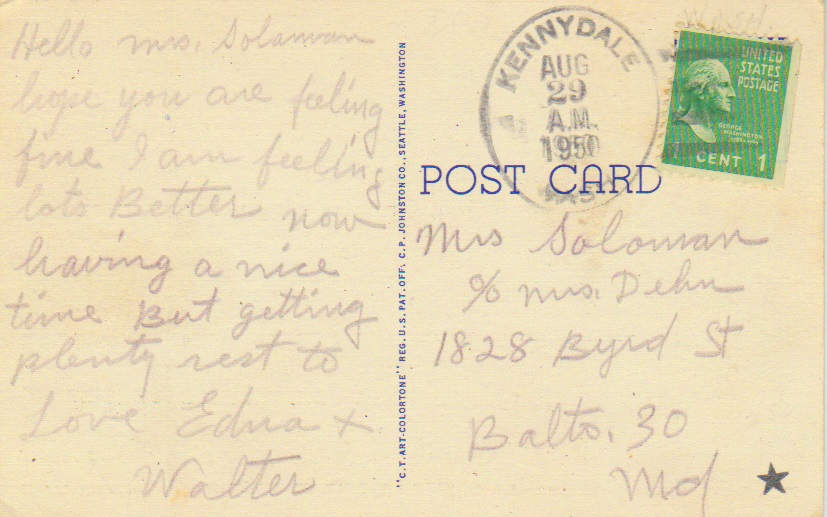 Hello mrs. Soloman
hope you are feeling
fine I am feeling
lots Better now
having a nice
time But getting
plenty rest to
Love Edna +
Walter
"C.T. ART-COLORTONE" REG. U.S. PAT. OFF. C.P. JOHNSTON CO., SEATTLE, WASHINGTON
KENNYDALE
AUG
29
A.M.
1950
WASH
WASH
UNITED
STATES
POSTAGE
GEORGE
WASHINGTON
CENT 1
POST CARD
Mrs Soloman
c/o mrs. Dehn
1828 Byrd St
Balto. 30
Md